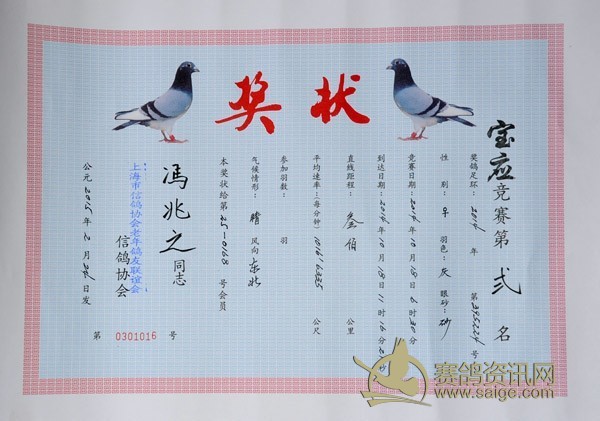 奖状
宝应竞赛第 弍 名
奖鸽足环：2014 年 第395224号
性别：♀ 羽色：灰 眼砂：砂
竞赛日期：2014年10月18日6时30分
到达日期：2014年10月18日11时16分
直线距程：叁佰 公里
平均速率：（每分钟） 公尺
参加羽数： 羽
气候情形：晴 风向 东北
本奖状给第 25-0168 号会员
冯兆之 同志
上海市信鸽协会老年鸽友联谊会
信鸽协会
公元 2015年2月 日发
第 0301016 号
赛鸽资讯网
www.saige.com